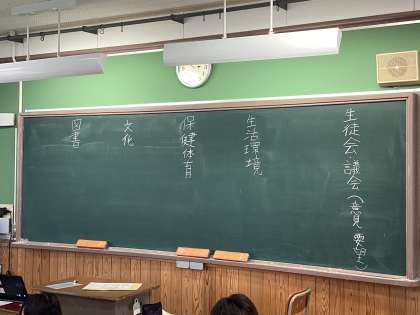 生徒会議会(意見 要望)
生活環境
保健体育
文化
図書